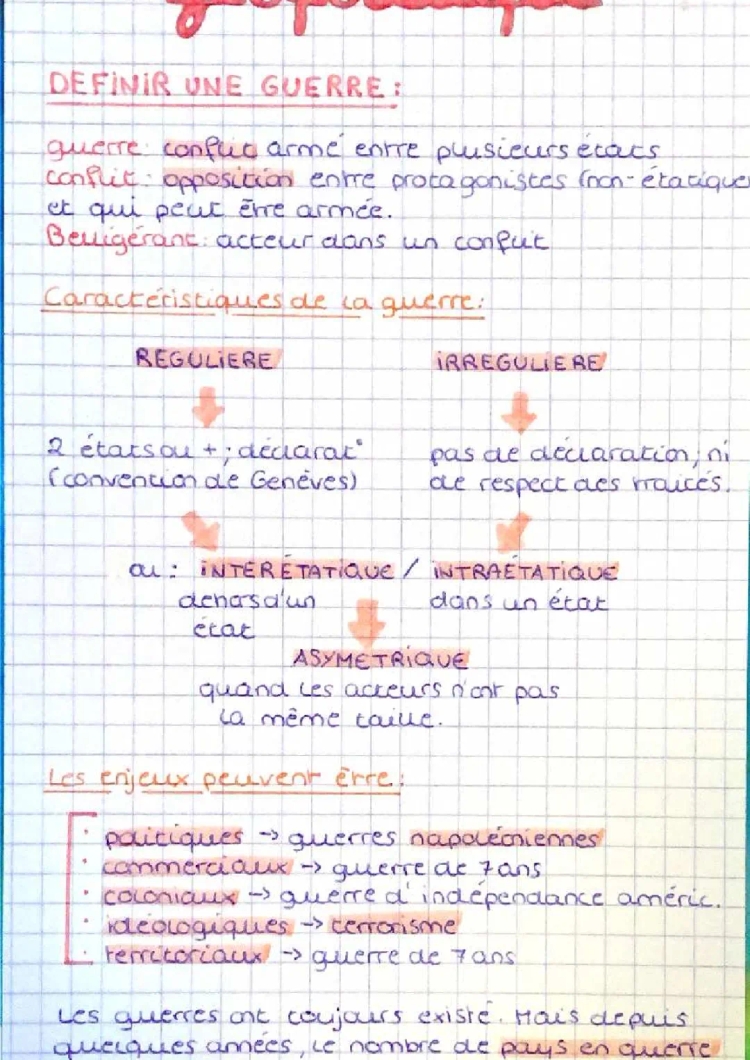 DEFINIR UNE GUERRE :
guerre: conflit armé entre plusieurs états
conflit : opposition entre protagonistes (non-étatique
et qui peut être armée.
Belligérant: acteur dans un conflit
Caractéristiques de la guerre:
REGULIERE IRREGULIERE
2 états ou + ; déclarat° pas de déclaration, ni
(convention de Genèves) de respect des traités.
ou : INTERÉTATIQUE / INTRAÉTATIQUE
dehors d'un dans un état
état
ASYMETRIQUE
quand les acteurs n'ont pas
la même taille.
Les enjeux peuvent être:
• politiques -> guerres napoléoniennes
• commerciaux -> guerre de 7 ans
• coloniaux -> guerre d'indépendance améric.
• idéologiques -> terrorisme
• territoriaux -> guerre de 7 ans
Les guerres ont toujours existé. Mais depuis
quelques années, le nombre de pays en guerre